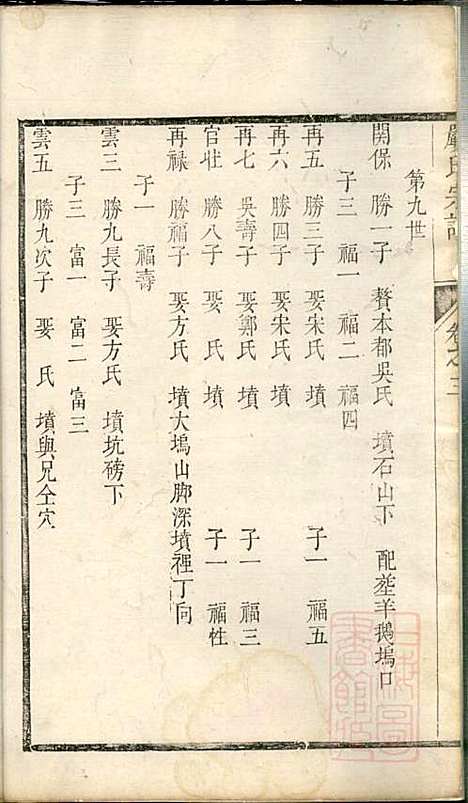 嚴氏宗譜
卷之三
第九世
關保　勝一子　贅本都吳氏　墳石山下　配塟羊鵝塢口
子三　福一　福二　福四
再五　勝三子　娶宋氏　墳　子一　福五
再六　勝四子　娶宋氏　墳
再七　吳壽子　娶鄭氏　墳　子一　福三
官壯　勝八子　娶　氏　墳　子一　福性
再祿　勝福子　娶方氏　墳大塢山脚深墳裡丁向
子一　福壽
雲三　勝九長子　娶方氏　墳坑磅下
子三　富一　富二　富三
雲五　勝九次子　娶　氏　墳與兄仝穴